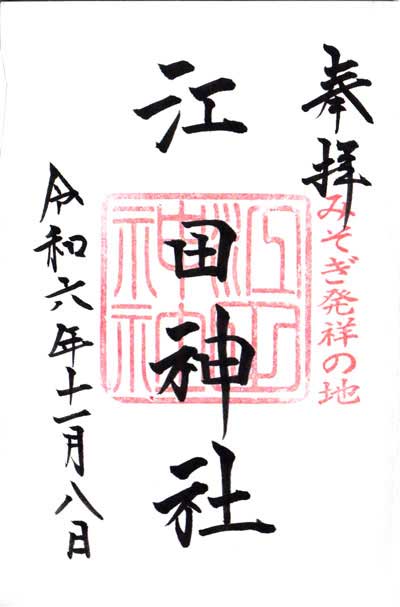 奉拝
みそぎ発祥の地
江田神社
江田神社
令和六年十一月八日